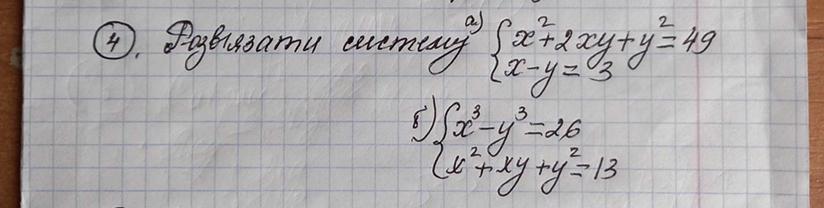 4. Розв'язати систему а) { x² + 2xy + y² = 49
x - y = 3
б) { x³ - y³ = 26
x² + xy + y² = 13